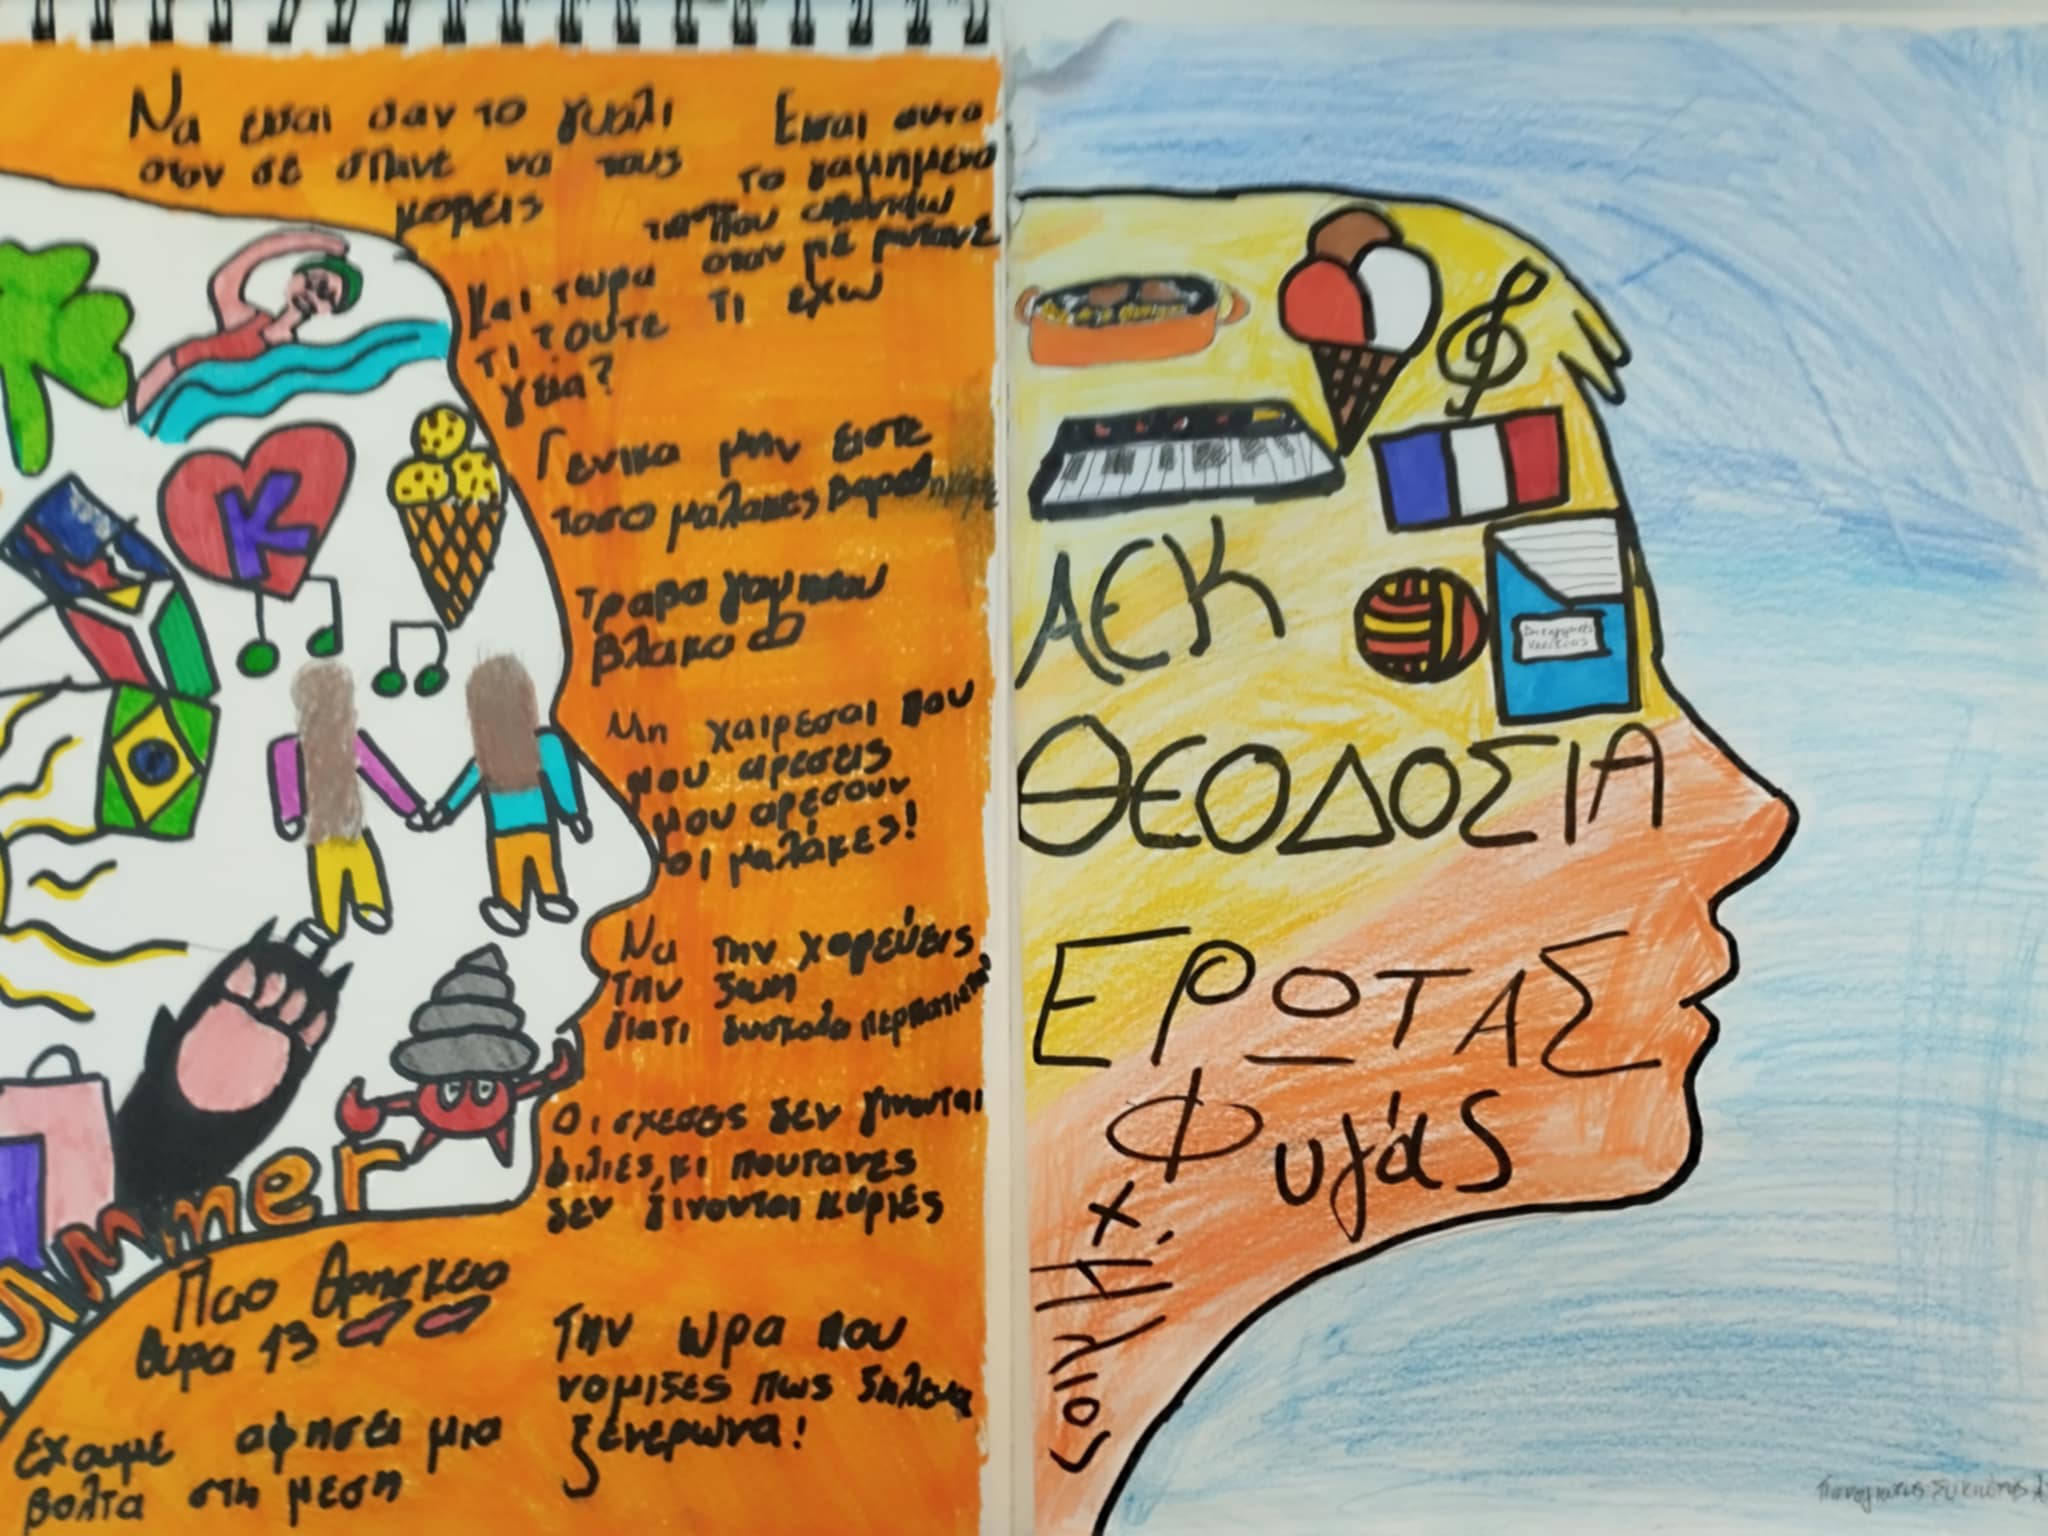 Να εισαι σαν το γυαλι
οταν σε σπανε να τους
κοβεις
Εισαι αυτο
το γαμημενο
που
οταν με ρωτανε
τι εχω
Και τωρα
τι τουτε
γεια?
Γενικα μην ειστε
τοσο μαλακες
τραβα γαμησου
βλακα
Μη χαιρεσαι που
μου αρεσεις
μου αρεσουν
οι μαλάκες!
Να την χορεύεις
την ζωη
γιατι δυσκολα περπατιεται
Οι σχεσεις δεν γινονται
φιλιες, κι πουτανες
δεν γινονται κυριες
K
ummer
Παο θρησκεια
θυρα 13
Την ωρα που
νομιζες πως ζηλευα
ξενερωνα!
εχουμε αφησει μια
βολτα στη μεση
ΑΕΚ
ΘΕΟΔΟΣΙΑ
ΕΡΩΤΑΣ
Φυγάς